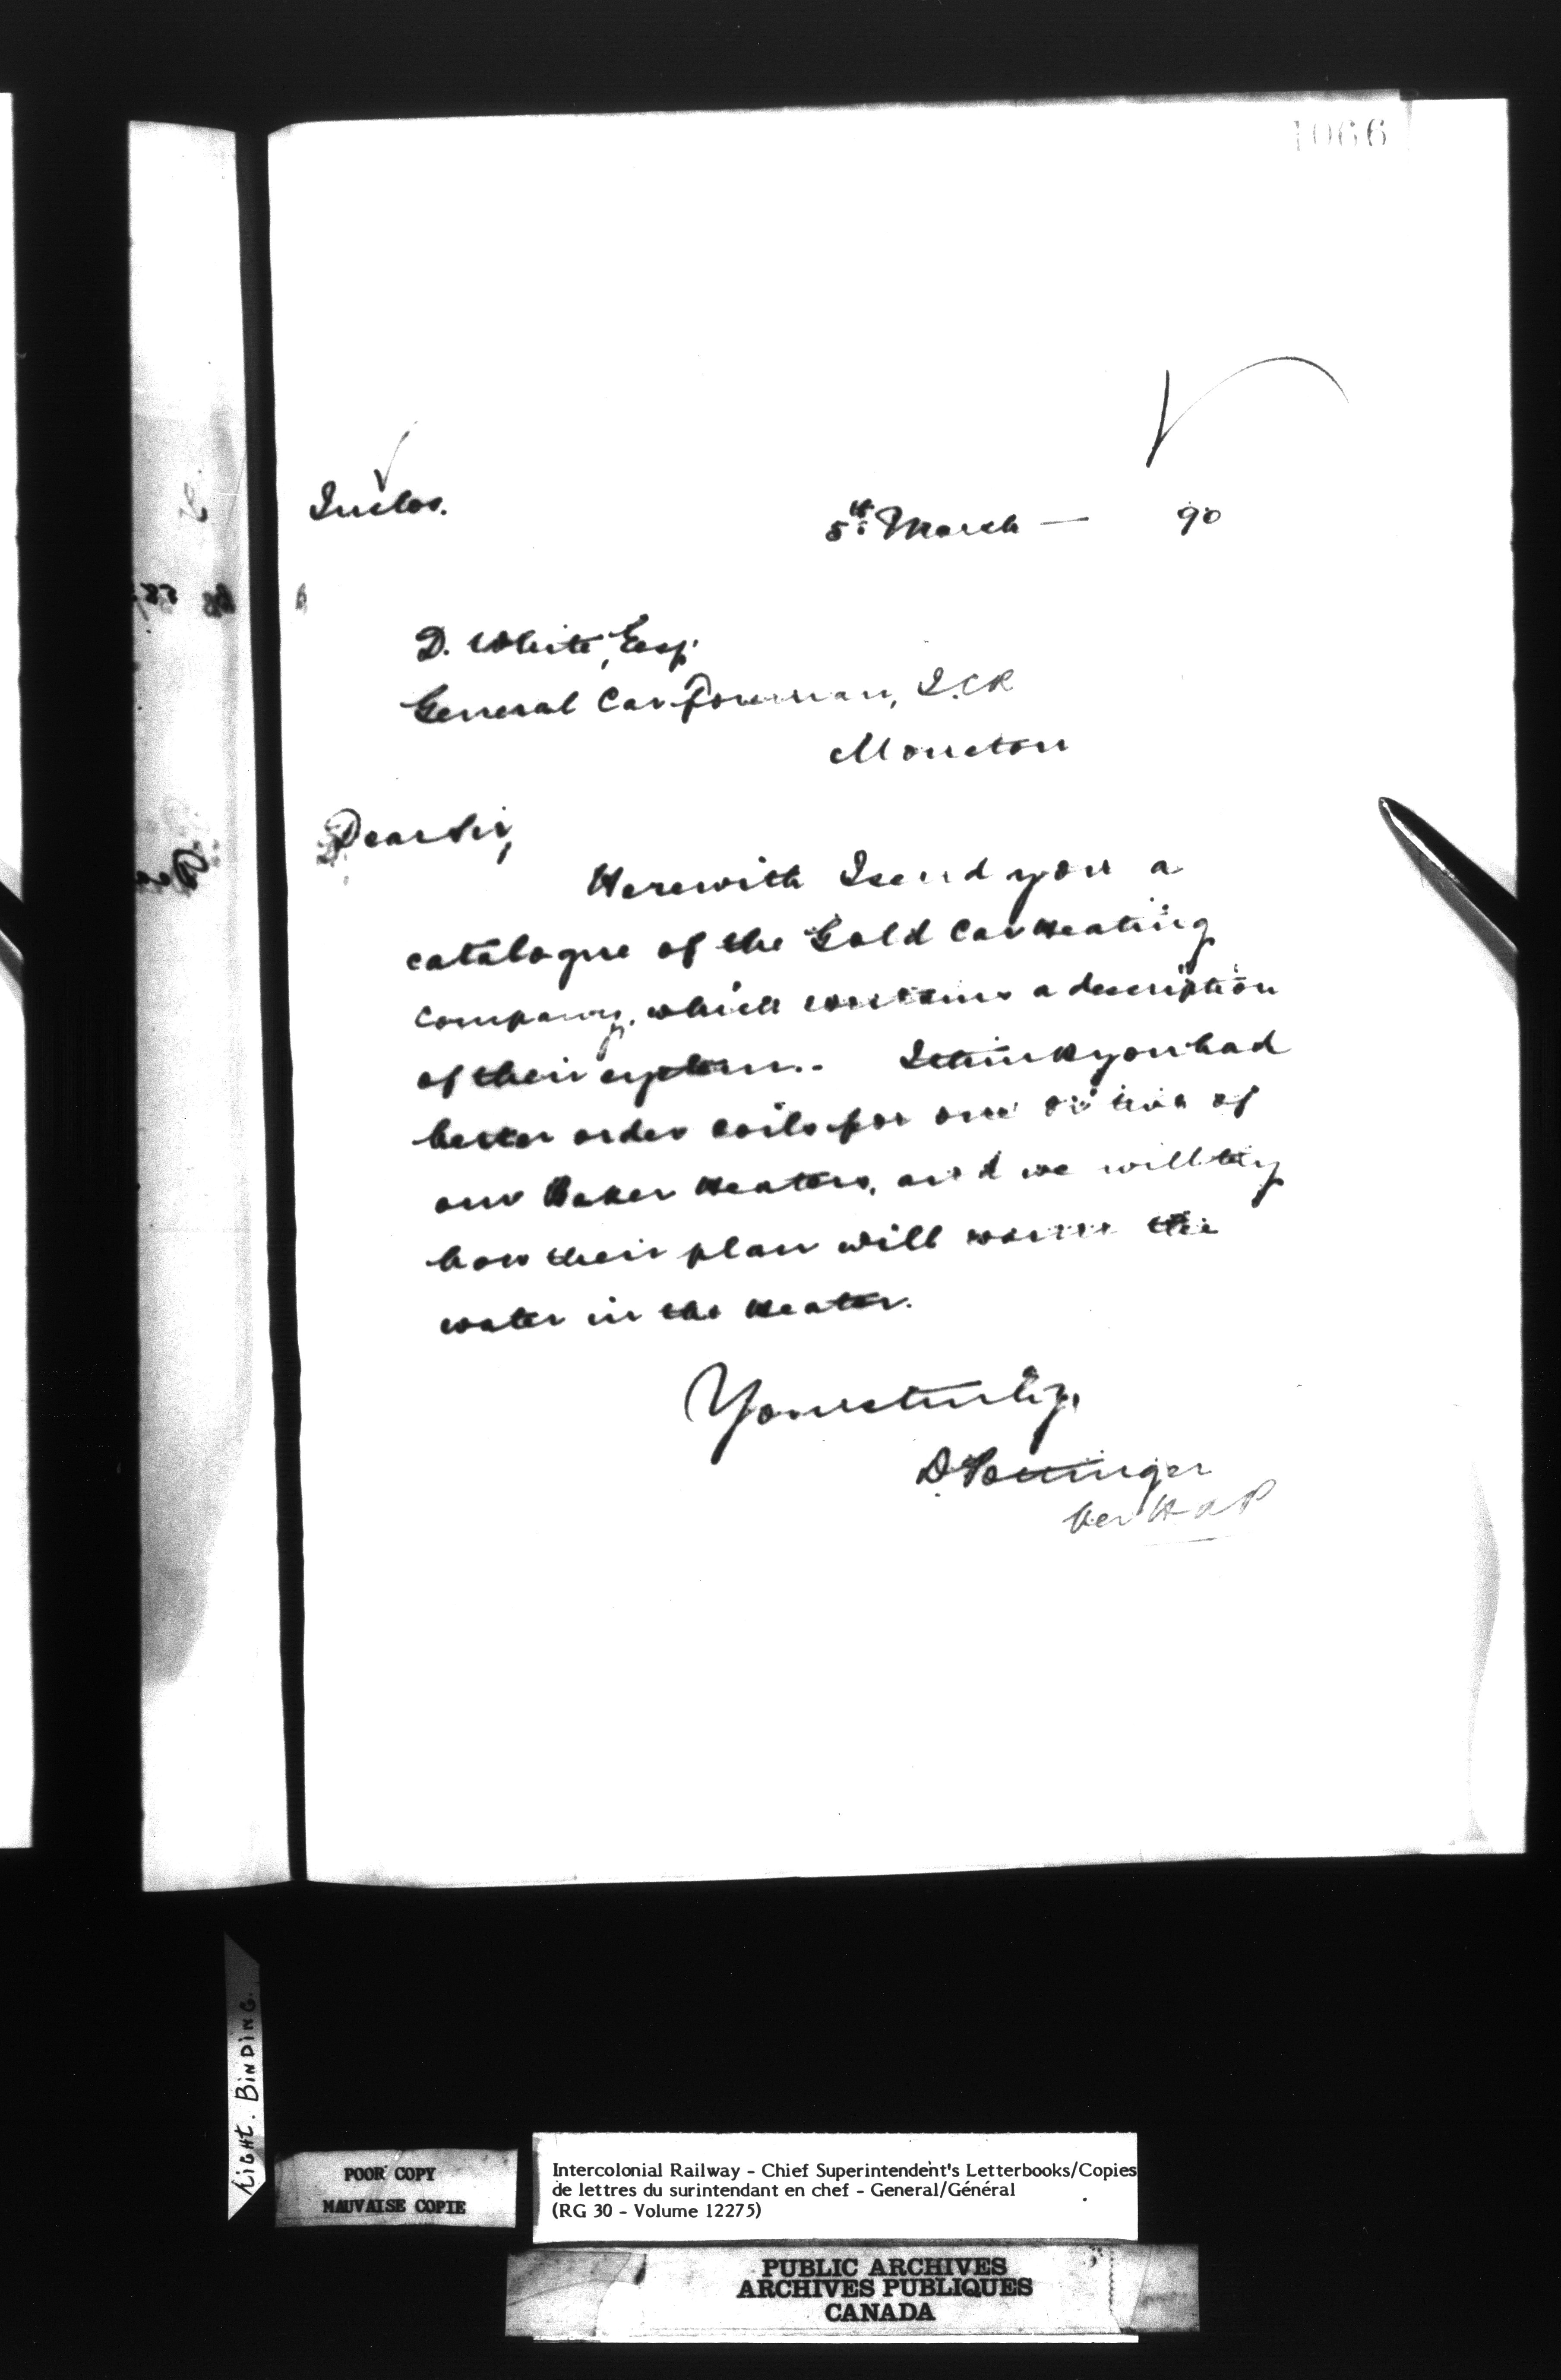 1066
Inclos.
5th March — 90
D. White, Esq.
General Car Foreman, I.C.R
Moncton
Dear Sir,
Herewith I send you a
catalogue of the Gold Car Heating
Company, which contains a description
of their system. I think you had
better order coils for one or two of
our Baker Heaters, and we will try
how their plan will warm the
water in the Heater.
Yours truly,
D. Pottinger
Per
LIGHT. BINDING.
POOR COPY
MAUVAISE COPIE
Intercolonial Railway - Chief Superintendent's Letterbooks/Copies
de lettres du surintendant en chef - General/Général
(RG 30 - Volume 12275)
PUBLIC ARCHIVES
ARCHIVES PUBLIQUES
CANADA